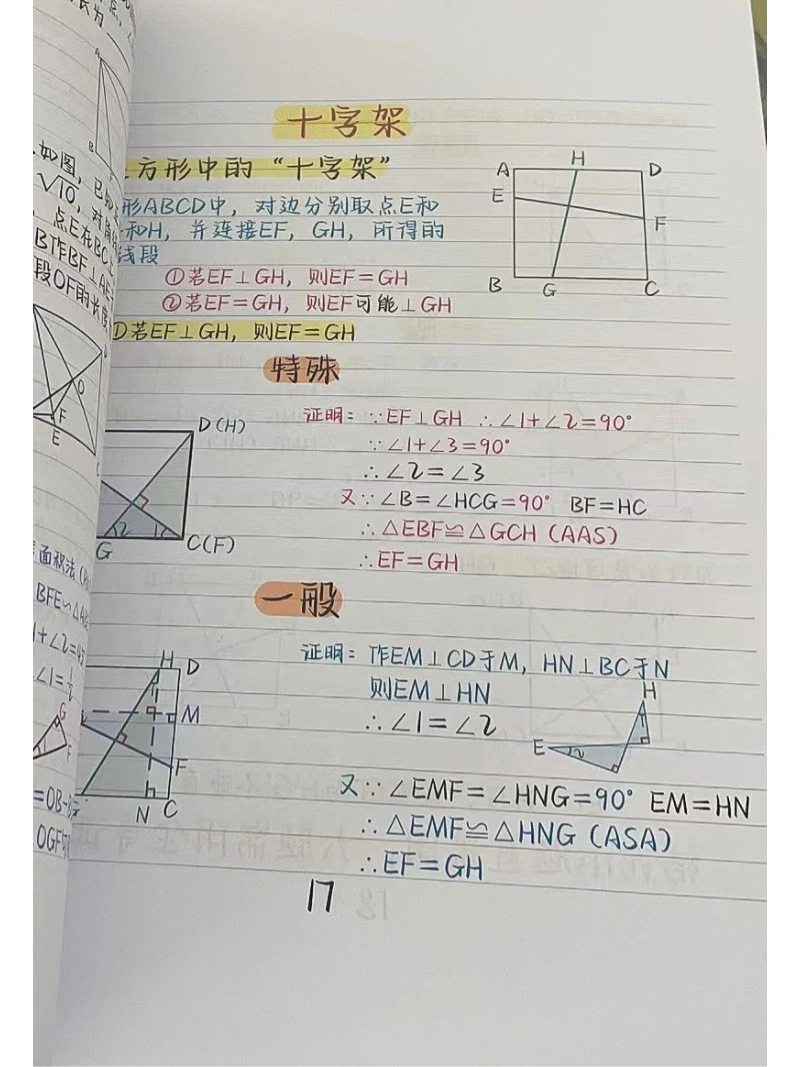 十字架
方形中的“十字架”
形ABCD中，对边分别取点E和
和H，并连接EF，GH，所得的
线段
①若EF⊥GH，则EF=GH
②若EF=GH，则EF可能⊥GH
①若EF⊥GH，则EF=GH
A H D
E F
B G C
特殊
证明：∵EF⊥GH ∴∠1+∠2=90°
∵∠1+∠3=90°
∴∠2=∠3
又∵∠B=∠HCG=90° BF=HC
∴△EBF≌△GCH（AAS）
∴EF=GH
D(H)
2 1
G C(F)
一般
证明：作EM⊥CD于M，HN⊥BC于N
则EM⊥HN
∴∠1=∠2
又∵∠EMF=∠HNG=90° EM=HN
∴△EMF≌△HNG（ASA）
∴EF=GH
H D
M
F
N C
H
1
E 2
17
如图，已
√10，对角
点E在BC上
B作BF⊥AE
段OF的长度
O
F
E
面积法
BFE∽△
1+∠2=45
∠1=½
G
F
=OB-
OGF